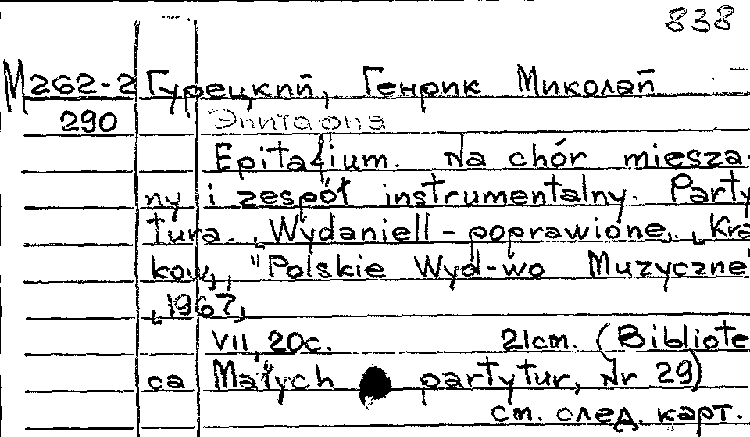 838
М262-2 Гурецкий, Генрик Миколай
290 Эпитафия
Epitafium. Na chór miesza-
ny i zespół instrumentalny. Party
tura. Wydanie II - poprawione. Kra
ków, "Polskie Wyd-wo Muzyczne"
, 1967,
VII, 20с. 21cm. (Bibliote
ca Małych partytur, Nr 29)
см. след. карт.